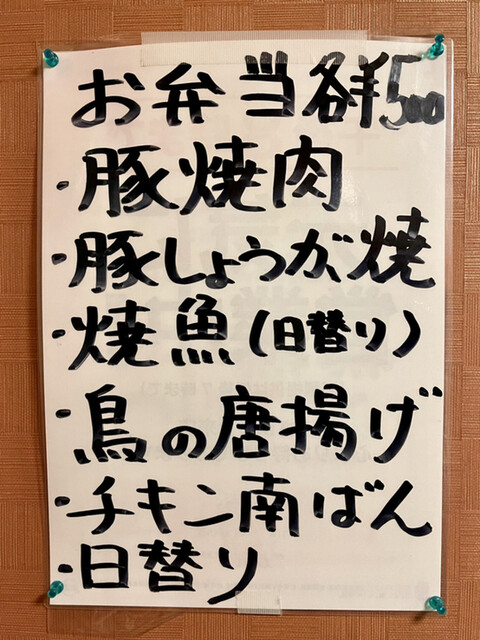 お弁当各¥500
・豚焼肉
・豚しょうが焼
・焼魚(日替り)
・鳥の唐揚げ
・チキン南ばん
・日替り